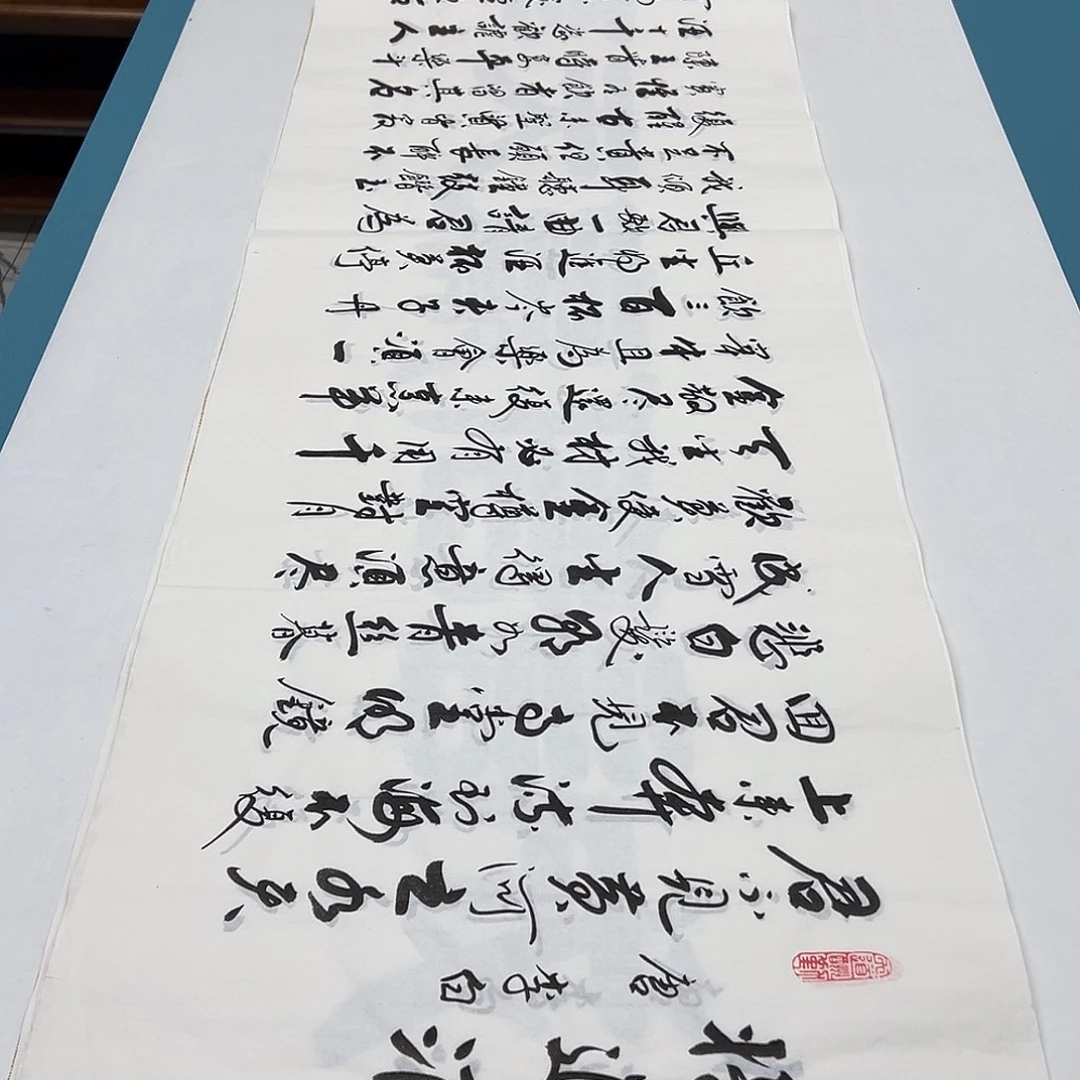 將進酒
唐李白
君不見黃河之水天
上來奔流到海不復
回君不見高堂明鏡
悲白髮朝如青絲暮
成雪人生得意須盡
歡莫使金樽空對月
天生我材必有用千
金散盡還復來烹羊
宰牛且為樂會須一
飲三百杯岑夫子丹
丘生將進酒杯莫停
與君歌一曲請君為
我傾耳聽鐘鼓饌玉
不足貴但願長醉不
復醒古來聖賢皆寂
寞惟有飲者留其名
陳王昔時宴平樂斗
酒十千恣歡謔主人